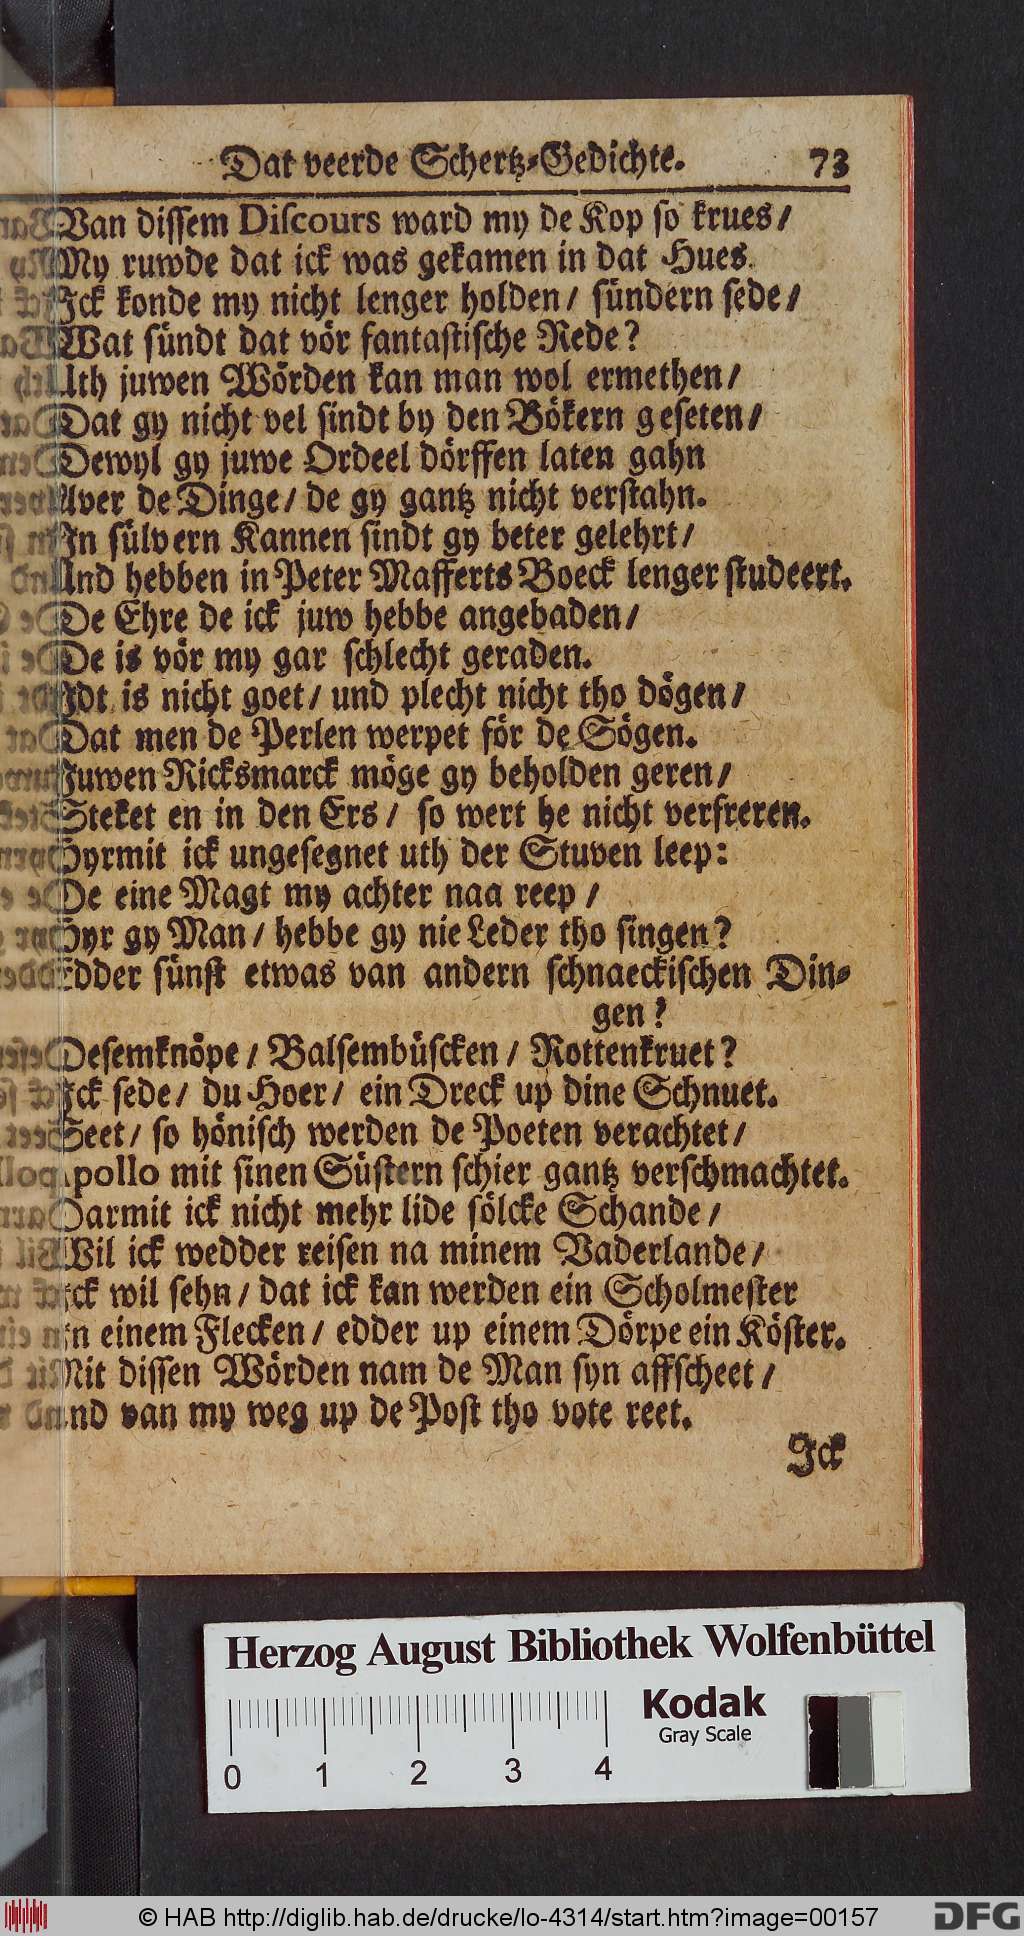 Dat veerde Schertz-Gedichte. 73
Van dissem Discours ward my de Kop so krues/
My ruwde dat ick was gekamen in dat Hues.
Ick konde my nicht lenger holden/ sündern sede/
Wat sündt dat vör fantastische Rede?
Uth juwen Wörden kan man wol ermethen/
Dat gy nicht vel sindt by den Bökern geseten/
Dewyl gy juwe Ordeel dörffen laten gahn
Aver de Dinge/ de gy gantz nicht verstahn.
In sülvern Kannen sindt gy beter gelehrt/
Und hebben in Peter Mafferts Boeck lenger studeert.
De Ehre de ick juw hebbe angebaden/
De is vör my gar schlecht geraden.
Idt is nicht goet/ und plecht nicht tho dögen/
Dat men de Perlen werpet för de Sögen.
Juwen Ricksmarck möge gy beholden geren/
Steket en in den Ers/ so wert he nicht verfreren.
Hyrmit ick ungesegnet uth der Stuven leep:
De eine Magt my achter naa reep/
Hyr gy Man/ hebbe gy nie Leder tho singen?
Edder sünst etwas van andern schnaeckischen Din-
gen?
Desemknöpe/ Balsembüscken/ Rottenkruet?
Ick sede/ du Hoer/ ein Dreck up dine Schnuet.
Seet/ so hönisch werden de Poeten verachtet/
Apollo mit sinen Süstern schier gantz verschmachtet.
Darmit ick nicht mehr lide sölcke Schande/
Wil ick wedder reisen na minem Vaderlande/
Ick wil sehn/ dat ick kan werden ein Scholmester
In einem Flecken/ edder up einem Dörpe ein Köster.
Mit dissen Wörden nam de Man syn affscheet/
Und van my weg up de Post tho vote reet.
Ick
Herzog August Bibliothek Wolfenbüttel
Kodak
Gray Scale
0 1 2 3 4
© HAB http://diglib.hab.de/drucke/lo-4314/start.htm?image=00157
DFG